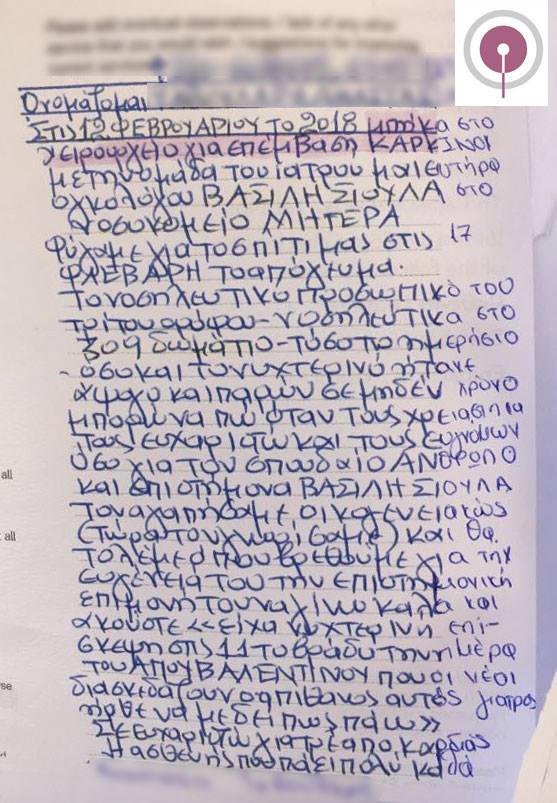 Ονομάζομαι
ΣΤΙΣ 12 ΦΕΒΡΟΥΑΡΙΟΥ ΤΟ 2018 μπήκα στο
χειρουργείο για επέμβαση ΚΑΡΚΙΝΟΥ
με την ομάδα του ιατρου μαιευτήρα
ογκολόγου ΒΑΣΙΛΗ ΣΙΟΥΛΑ στο
Νοσοκομείο ΜΗΤΕΡΑ
φύγαμε για το σπίτι μας στις 17
ΦΛΕΒΑΡΗ το απόγευμα.
Το νοσηλευτικό προσωπικό του
τρίτου ορόφου - νοσηλεύτικα στο
309 δωμάτιο - τόσο το ημερήσιο
όσο και το νυχτερινό ήτανε
άψογο και παρών σε μηδέν χρόνο
μπορώ να πω όταν τους χρειάστηκα
τους ευχαριστώ και τους ευγνωμων
Όσο για τον σπουδαίο ΑΝΘΡΩΠΟ
και επιστήμονα ΒΑΣΙΛΗ ΣΙΟΥΛΑ
τον αγαπήσαμε οικογενειακώς
(τώρα τον γνωρίσαμε) και θα
το λέμε όπου βρεθούμε για την
ευγένεια του την επιστημονική
επιμονή του να γίνω καλά και
ακούστε << είχα νυχτερινη επί-
σκεψη στις 11 το βράδυ την ημέρα
του ΑΠΟΥ ΒΑΛΕΝΤΙΝΟΥ που οι νέοι
διασκεδάζουν ο απίθανος αυτός γιατρος
ήρθε να με δει πως πάω >>
Σε ευχαριστώ γιατρέ από καρδιάς
Η ασθενής που πάει πολύ καλά
all
all
se